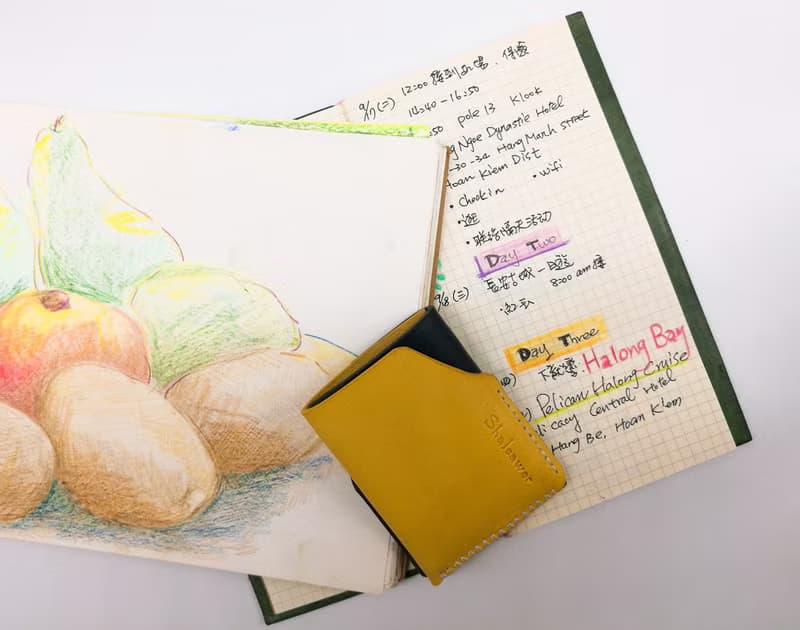 9/17 (二) 12:00
14:40 - 16:50
50 pole 13 Klook
g Ngoc Dynastie Hotel
-30-34 Hang Manh street
Hoan Kiem Dist
• Check in • wifi
•逛
• 聯絡隔天活动
Day Two
9/18 (三) 長安古都一日遊
8:00 am 接
Day Three
(四) 下龍灣 Halong Bay
) Pelican Halong Cruise
licacy Central Hotel
Hang Be, Hoan Kiem
Shaleawer